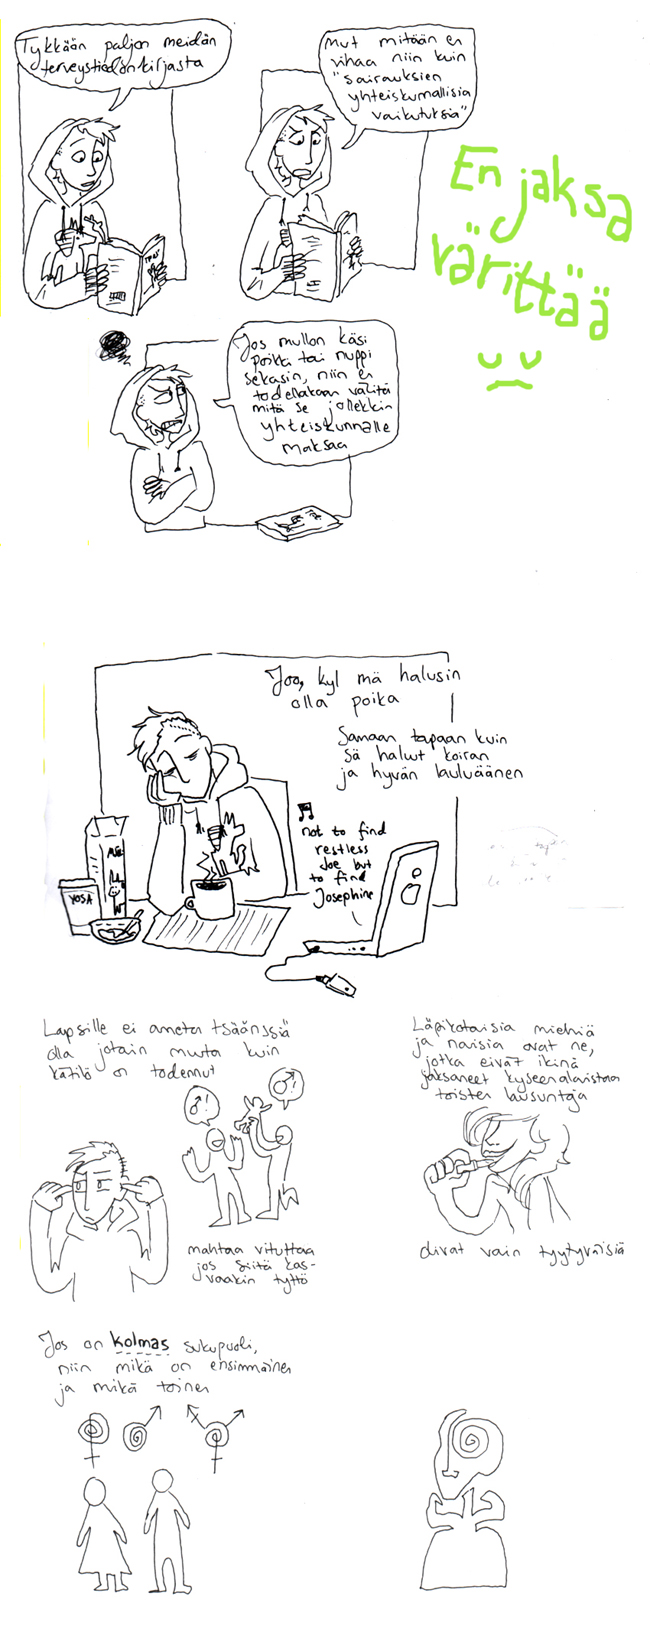 Tykkään paljon meidän
terveystiedon kirjasta
Mut mitään en
vihaa niin kuin
"sairauksien
yhteiskunnallisia
vaikutuksia"
En jaksa
värittää
Jos mullon käsi
poikki tai nuppi
sekasin, niin en
todellakaan välitä
mitä se jollekkin
yhteiskunnalle
maksaa
Joo, kyl mä halusin
olla poika
Samaan tapaan kuin
sä haluut koiran
ja hyvän lauluäänen
not to find
restless
Joe but
to find
Josephine
YOSA
Lapsille ei anneta tsäänssiä
olla jotain muuta kuin
kätilö on todennut
♂!
♂!
mahtaa vituttaa
jos siitä kas-
vaakin tyttö
Läpikotaisia miehiä
ja naisia ovat ne,
jotka eivät ikinä
jaksaneet kyseenalaistaa
toisten lausuntoja
olivat vain tyytyväisiä
Jos on kolmas sukupuoli,
niin mikä on ensimmäinen
ja mikä toinen